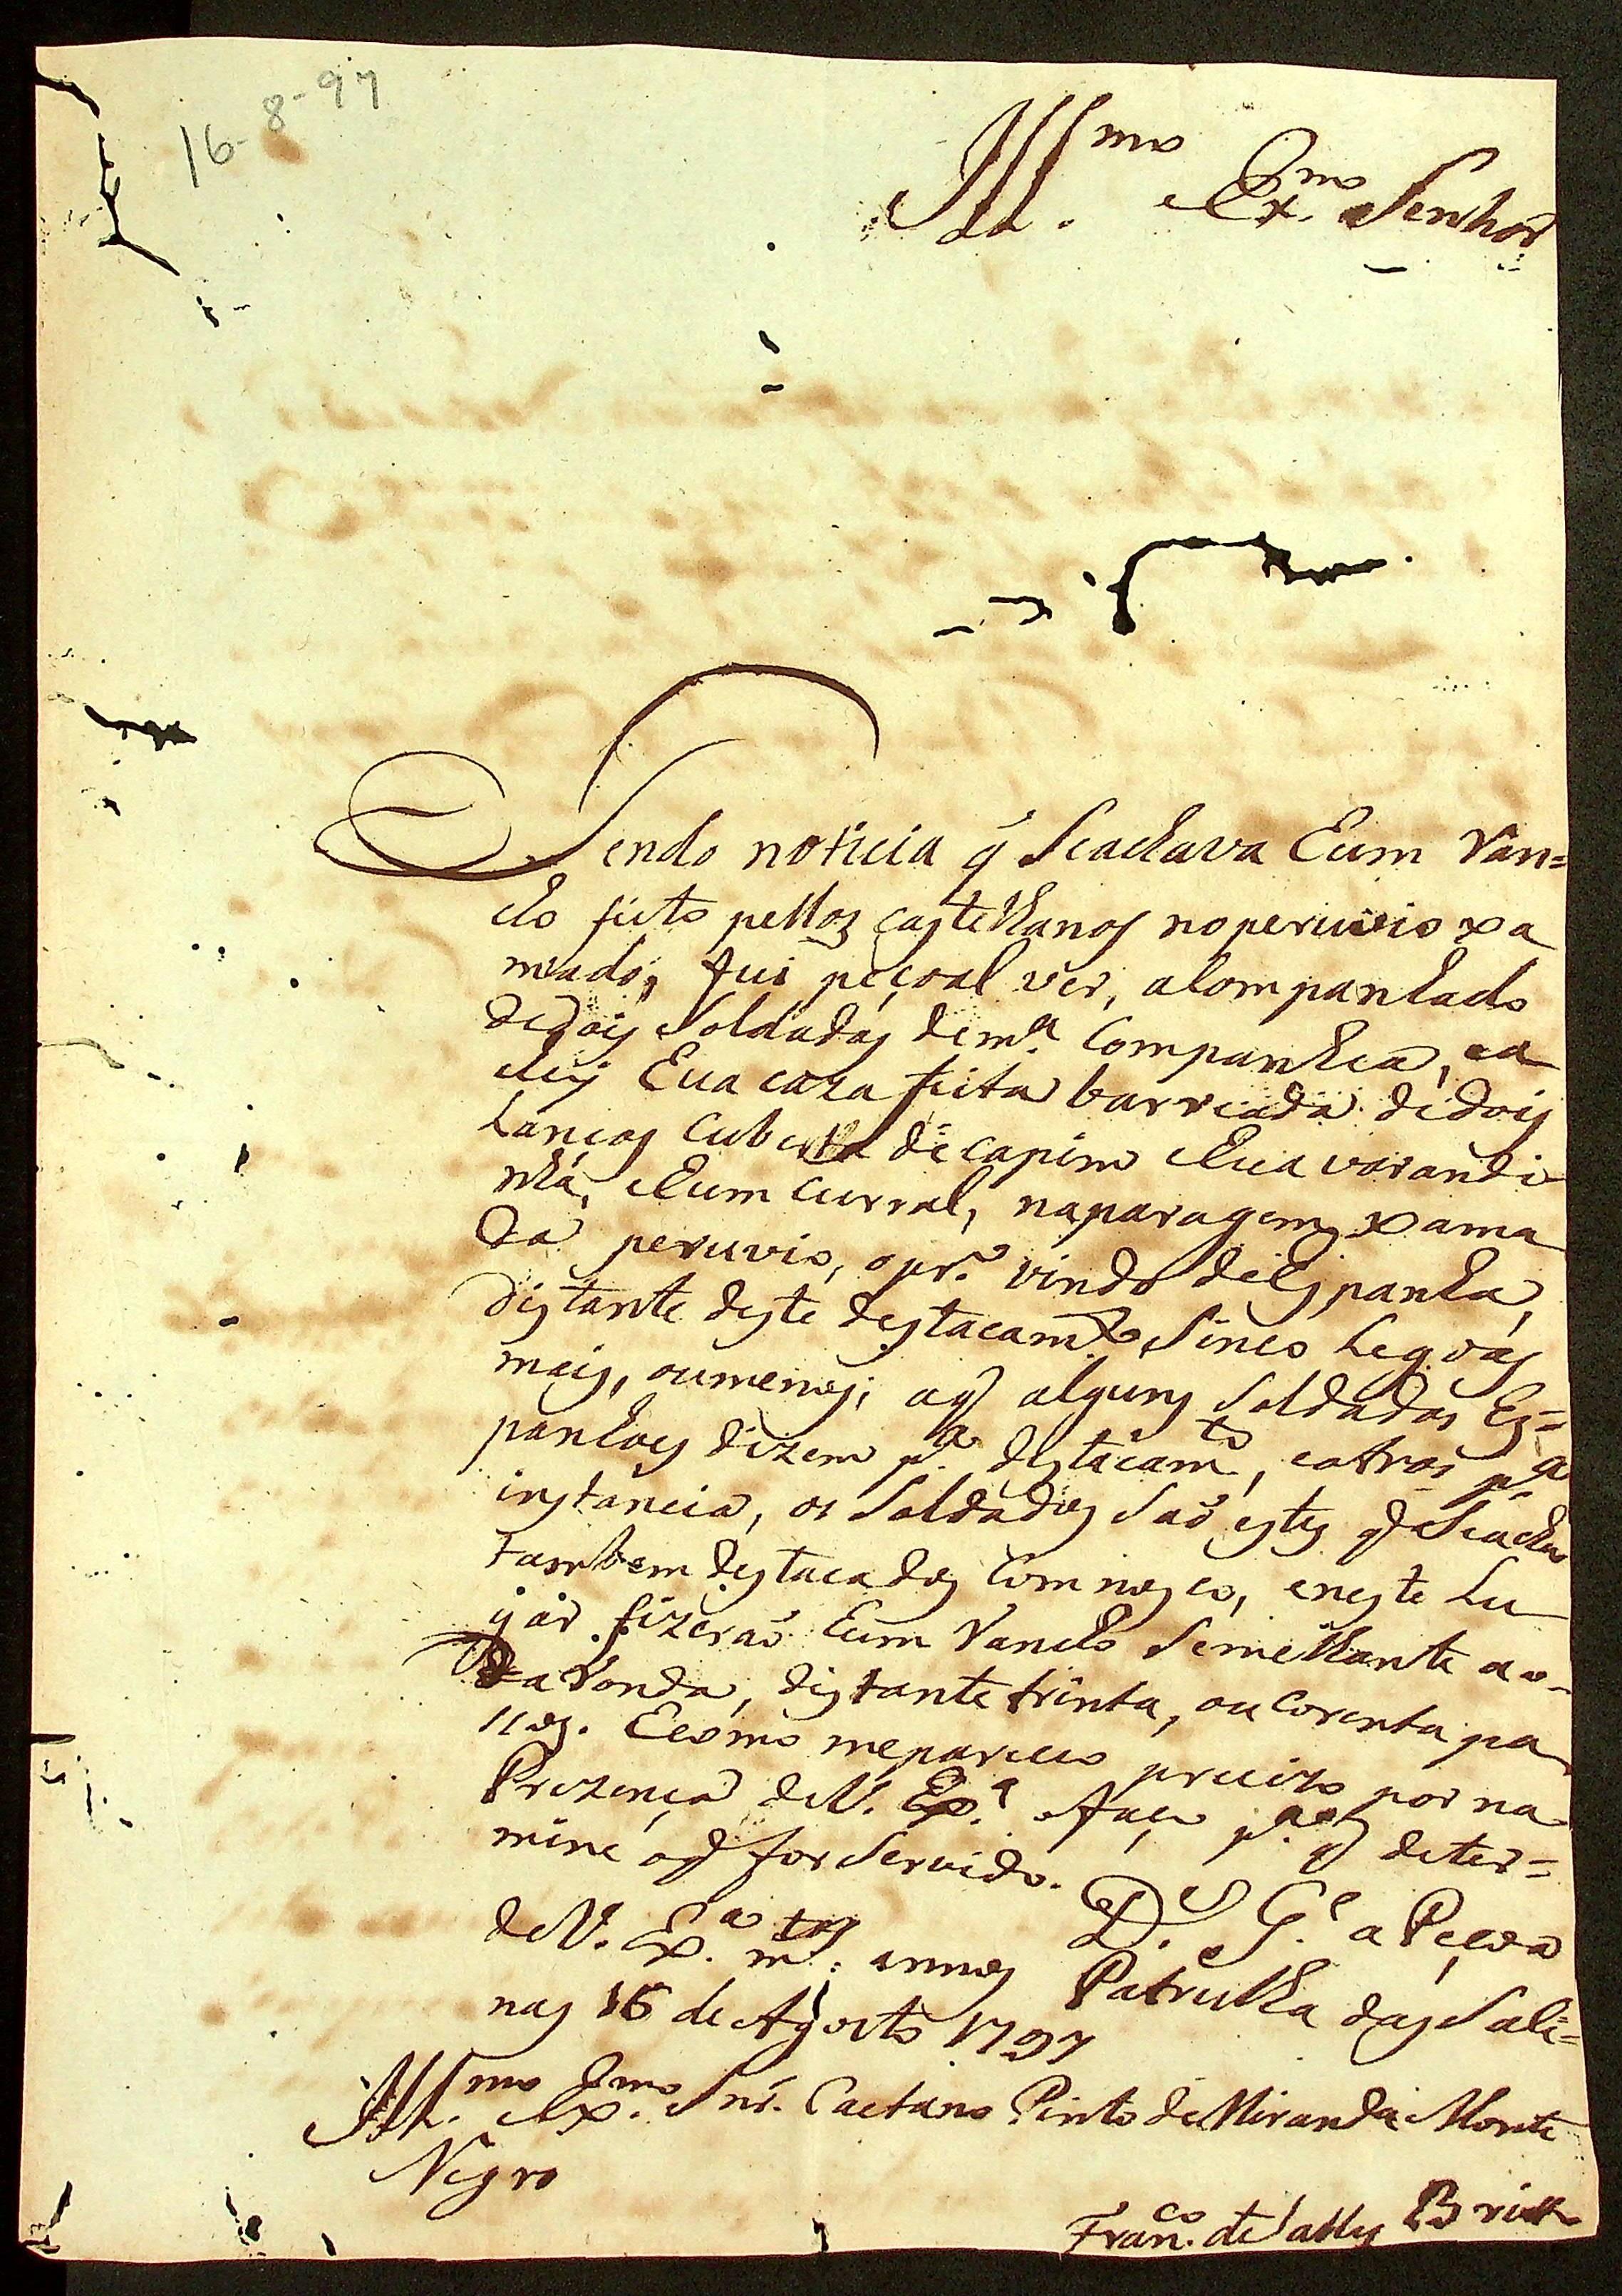 16-8-97
Ill.mo e Ex.mo Senhor
Tendo noticia q̃ Seachava Eum Ran=
cho feito pellos castelhanos noperuvio xa
mado, fui peçoal ver, acompanhado
dedois Soldados dem.a Companhia, ea
chei Eua caza feita barreada dedois
Lanços Cuberta decapim eEua varandi
nha, eEum curral, naparagem xama
da peruvio, opr.o vindo deEspanha,
distante deste destacam.to Sinco Legoas
mais, oumenos; aq̃ alguns Soldados Es=
panhoes dizem p.a destacam.to, eotros p.a
instancia, os Soldados Saõ estes q̃ Seachaõ
tambem destacados Comnosco, eneste Lu
gar fizeraõ Eum Rancho Semelhante ao
da Ronda, distante trinta, ou Corenta pa
ssos. Ecomo mepareceo precizo por na
Prezença deV. Ex.a ofaço p.a q̃ deter=
mine oq̃ for Servido. D.s G.e a Peçoa
deV. Ex.a m.tos annos Patrulha das Sali=
nas 16 de Agosto 1797
Ill.mo eEx.mo Snr. Caetano Pinto deMiranda Monte
Negro
Fran.co deSalles Brito